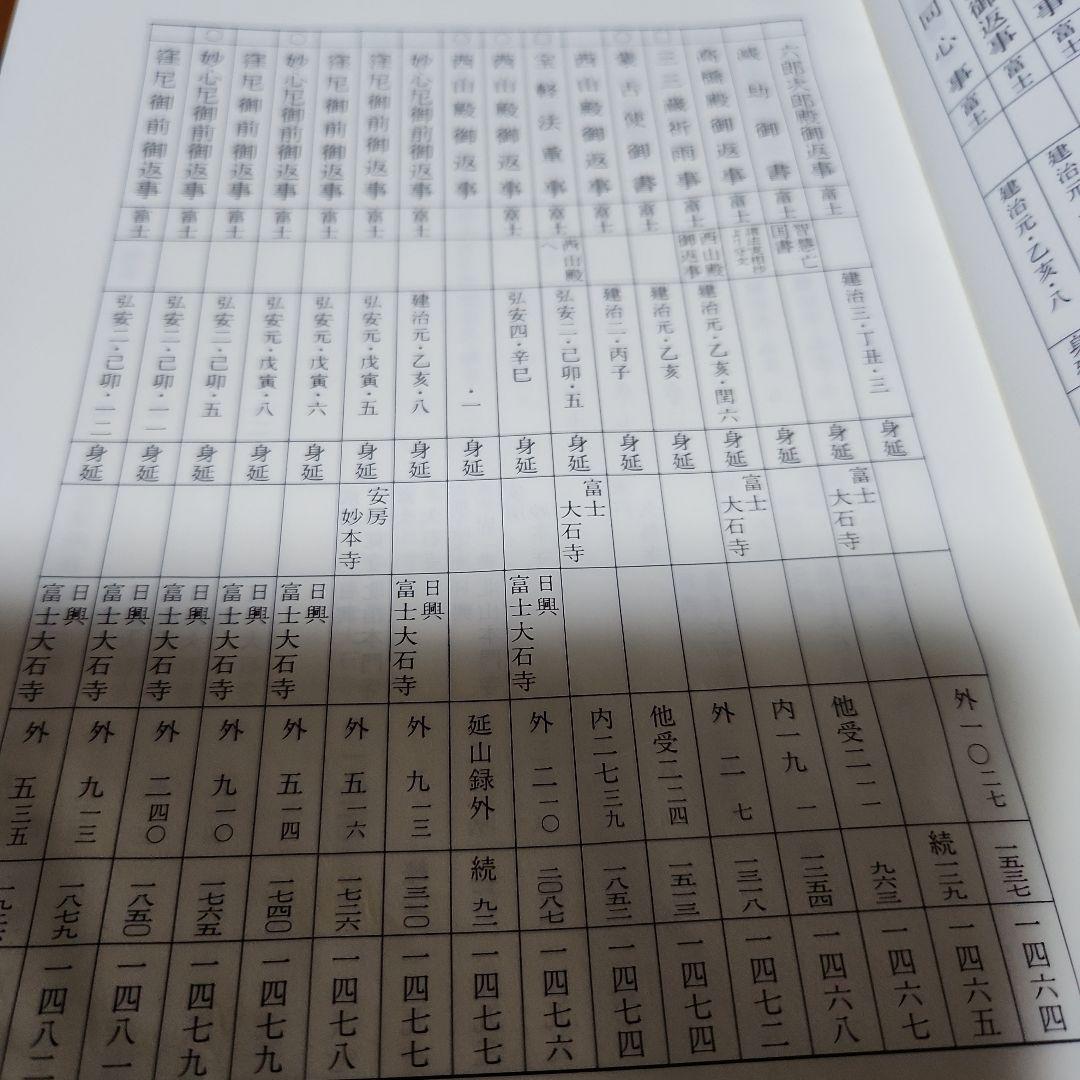 同心事 富士
御返事 富士 建治元・乙亥・八 身延
事 富士 建治元
六郎次郎殿御返事 富士 建治三・丁丑・三 身延 外一〇二七 一五三七 一四六四
減劫御書 富士 智慧亡国書 身延 富士大石寺 続二九 一四六五
高橋殿御返事 富士 身延 他受二一一 九六三 一四六七
三三蔵祈雨事 富士 西山殿御返事 建治元・乙亥・閏六 身延 富士大石寺 内一九一 一二五四 一四六八
蒙古使御書 富士 建治元・乙亥 身延 外二七 一三一八 一四七二
西山殿御返事 富士 建治二・丙子 身延 他受二二四 一五一三 一四七四
宝軽法重事 富士 西山殿へ 弘安二・己卯・五 身延 富士大石寺 内二七三九 一八五二 一四七四
西山殿御返事 富士 弘安四・辛巳 身延 日興 富士大石寺 外二一〇 二〇八七 一四七六
西山殿御返事 ・一 身延 延山録外 続九二 一四七七
妙心尼御前御返事 富士 建治元・乙亥・八 身延 日興 富士大石寺 外九一三 一三一〇 一四七七
窪尼御前御返事 富士 弘安元・戊寅・五 身延 安房妙本寺 外五一六 一七二六 一四七八
窪尼御前御返事 富士 弘安元・戊寅・六 身延 日興 富士大石寺 外五一四 一七四〇 一四七九
妙心尼御前御返事 富士 弘安元・戊寅・八 身延 日興 富士大石寺 外九一〇 一七六五 一四七九
窪尼御前御返事 富士 弘安二・己卯・五 身延 日興 富士大石寺 外二四〇 一八五〇 一四八一
妙心尼御前御返事 富士 弘安二・己卯・一一 身延 日興 富士大石寺 外九一三 一八七九 一四八二
窪尼御前御返事 富士 弘安二・己卯・一二 身延 日興 富士大石寺 外五三五